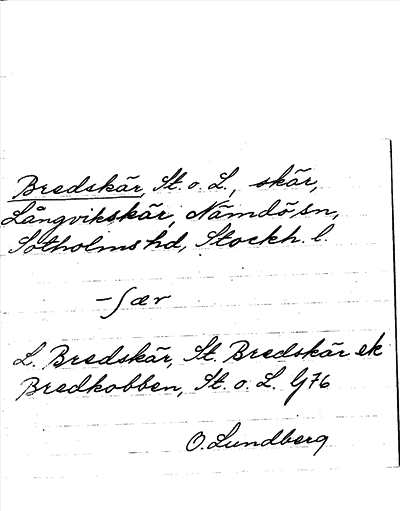 Bredskär, St. o. L., skär,
Långvikskär, Nämdö sn,
Sotholms hd, Stockh. l.
-ʃær
L. Bredskär, St. Bredskär ek
Bredkobben, St. o. L. G76
O. Lundberg